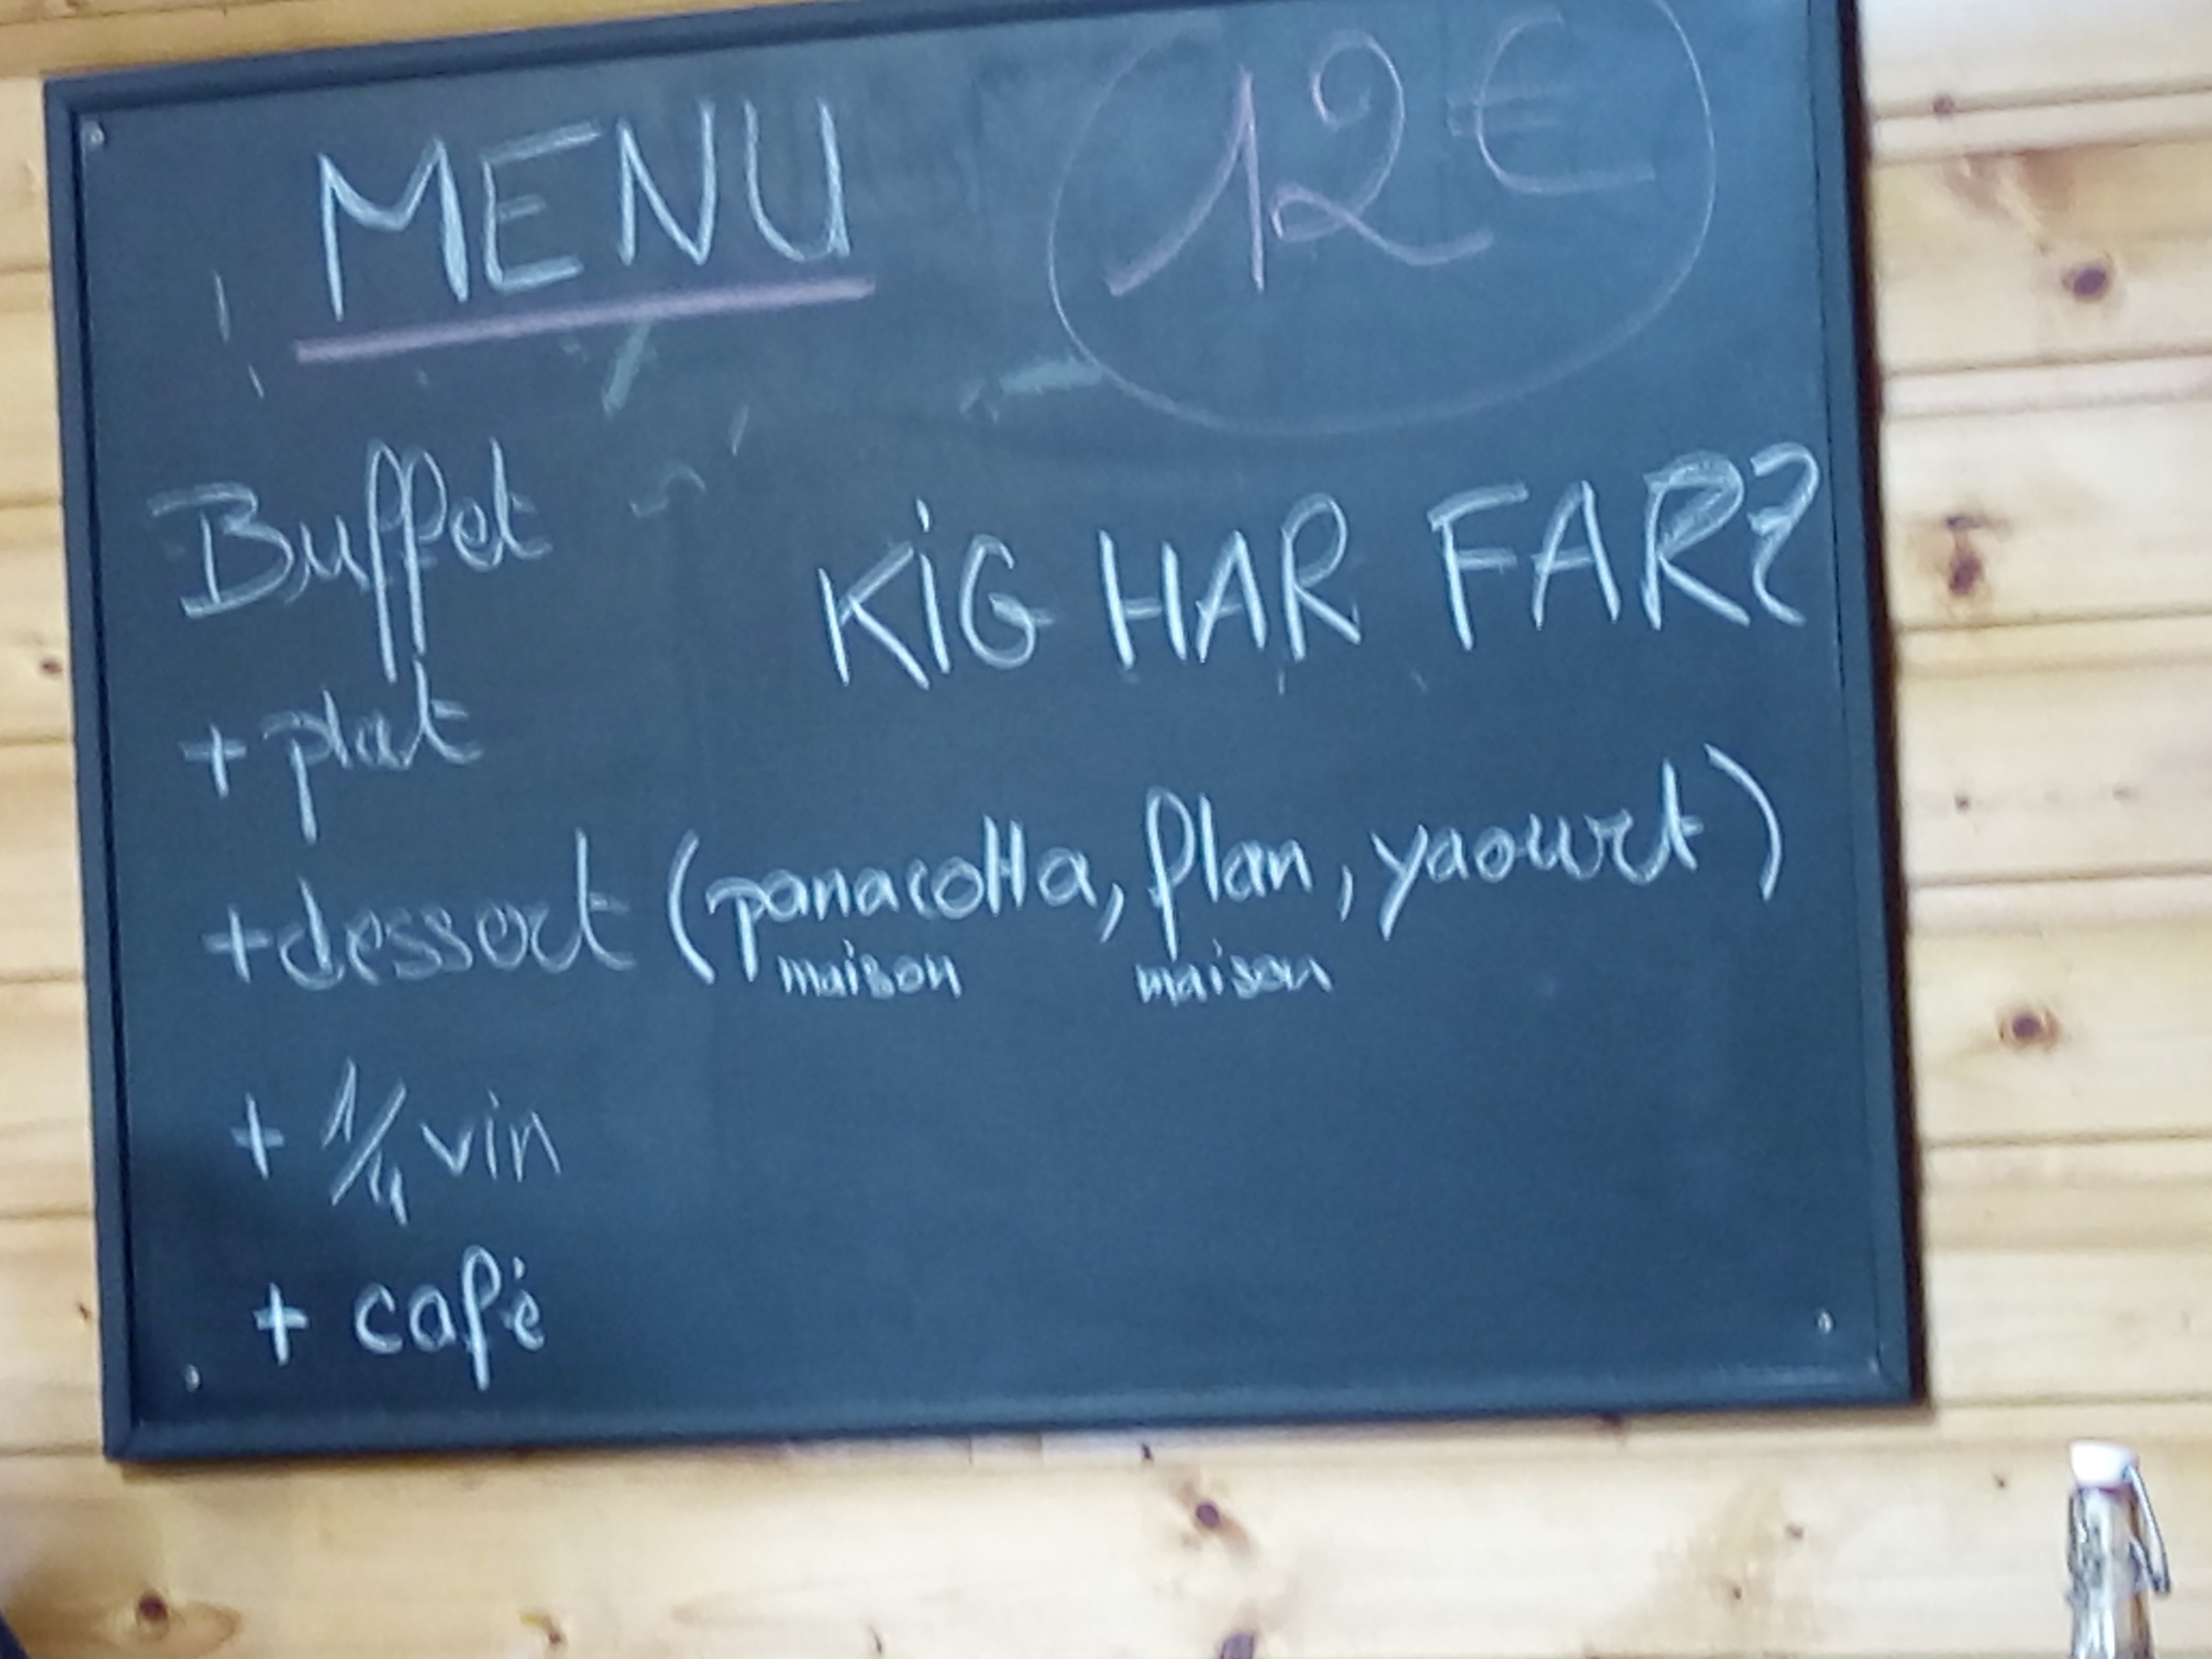 MENU 12€
Buffet
KIG HAR FARZ
+ plat
+ dessert (panacotta, flan, yaourt)
maison maison
+ 1/4 vin
+ café